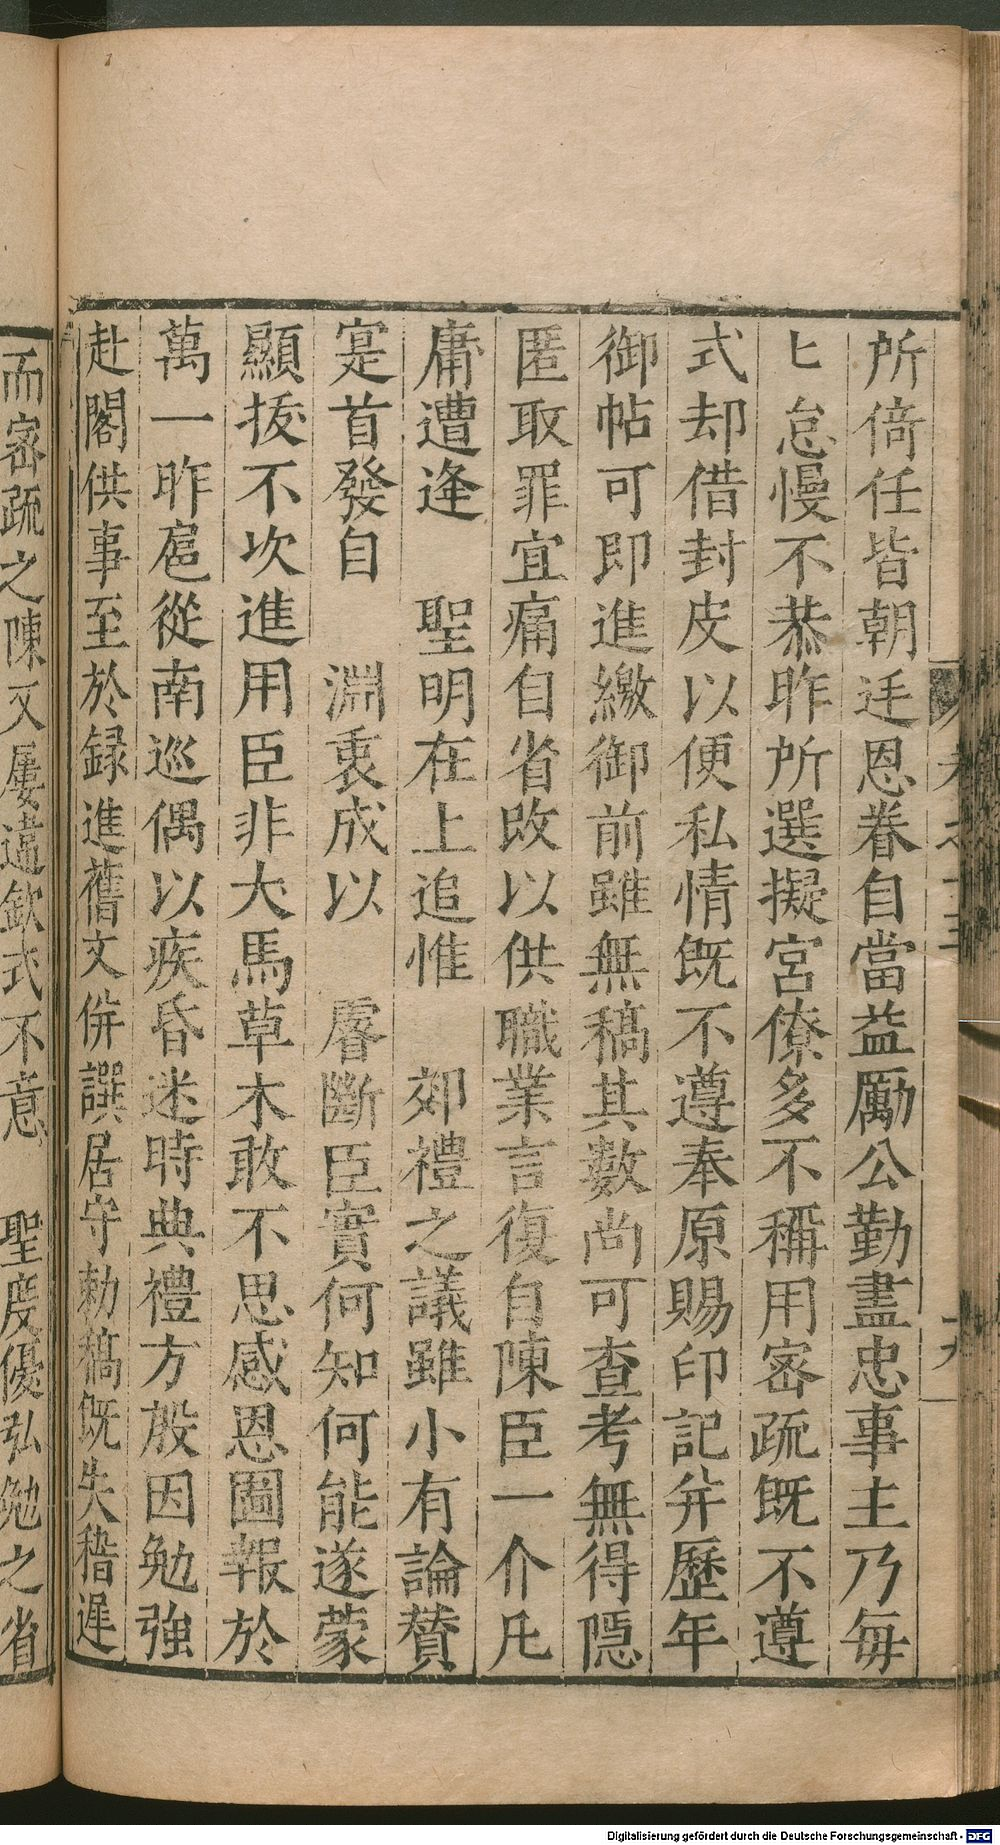 所倚任皆朝廷恩眷自當益勵公勤盡忠事主乃每
〻怠慢不恭昨所選擬宮僚多不稱用密疏既不遵
式却借封皮以便私情既不遵奉原賜印記并歷年
御帖可即進繳御前雖無稿其數尚可查考無得隱
匿取罪宜痛自省改以供職業言復自陳臣一介凡
庸遭逢　聖明在上追惟　郊禮之議雖小有論贊
寔首發自　淵衷成以　睿斷臣實何知何能遂蒙
顯拔不次進用臣非犬馬草木敢不思感恩圖報於
萬一昨扈從南巡偶以疾昏迷時典禮方殷因勉強
赴閣供事至於錄進舊文併譔居守勅稿既失稽遲
而密疏之陳又屢違欽式不意　聖度優弘勉之省
Digitalisierung gefördert durch die Deutsche Forschungsgemeinschaft - DFG